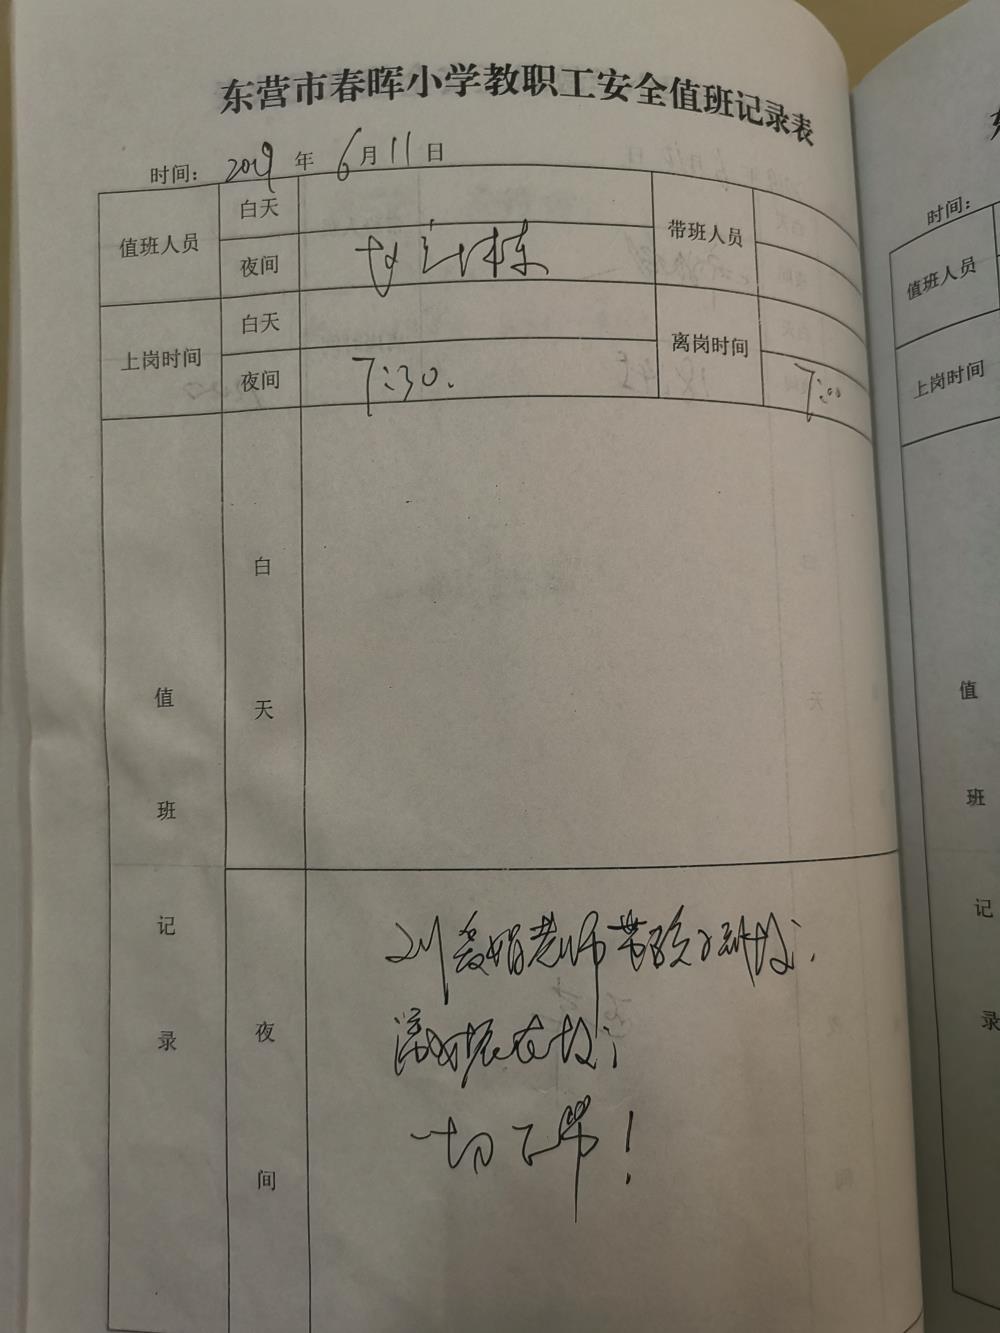 东营市春晖小学教职工安全值班记录表
时间: 2019 年 6月 11 日
值班人员 白天 带班人员
夜间
上岗时间 白天 离岗时间
夜间 7:30. 7:00
值班记录
白天
夜间
老师带孩子
一切正常!
时间:
值班人员
上岗时间
值
班
记
录